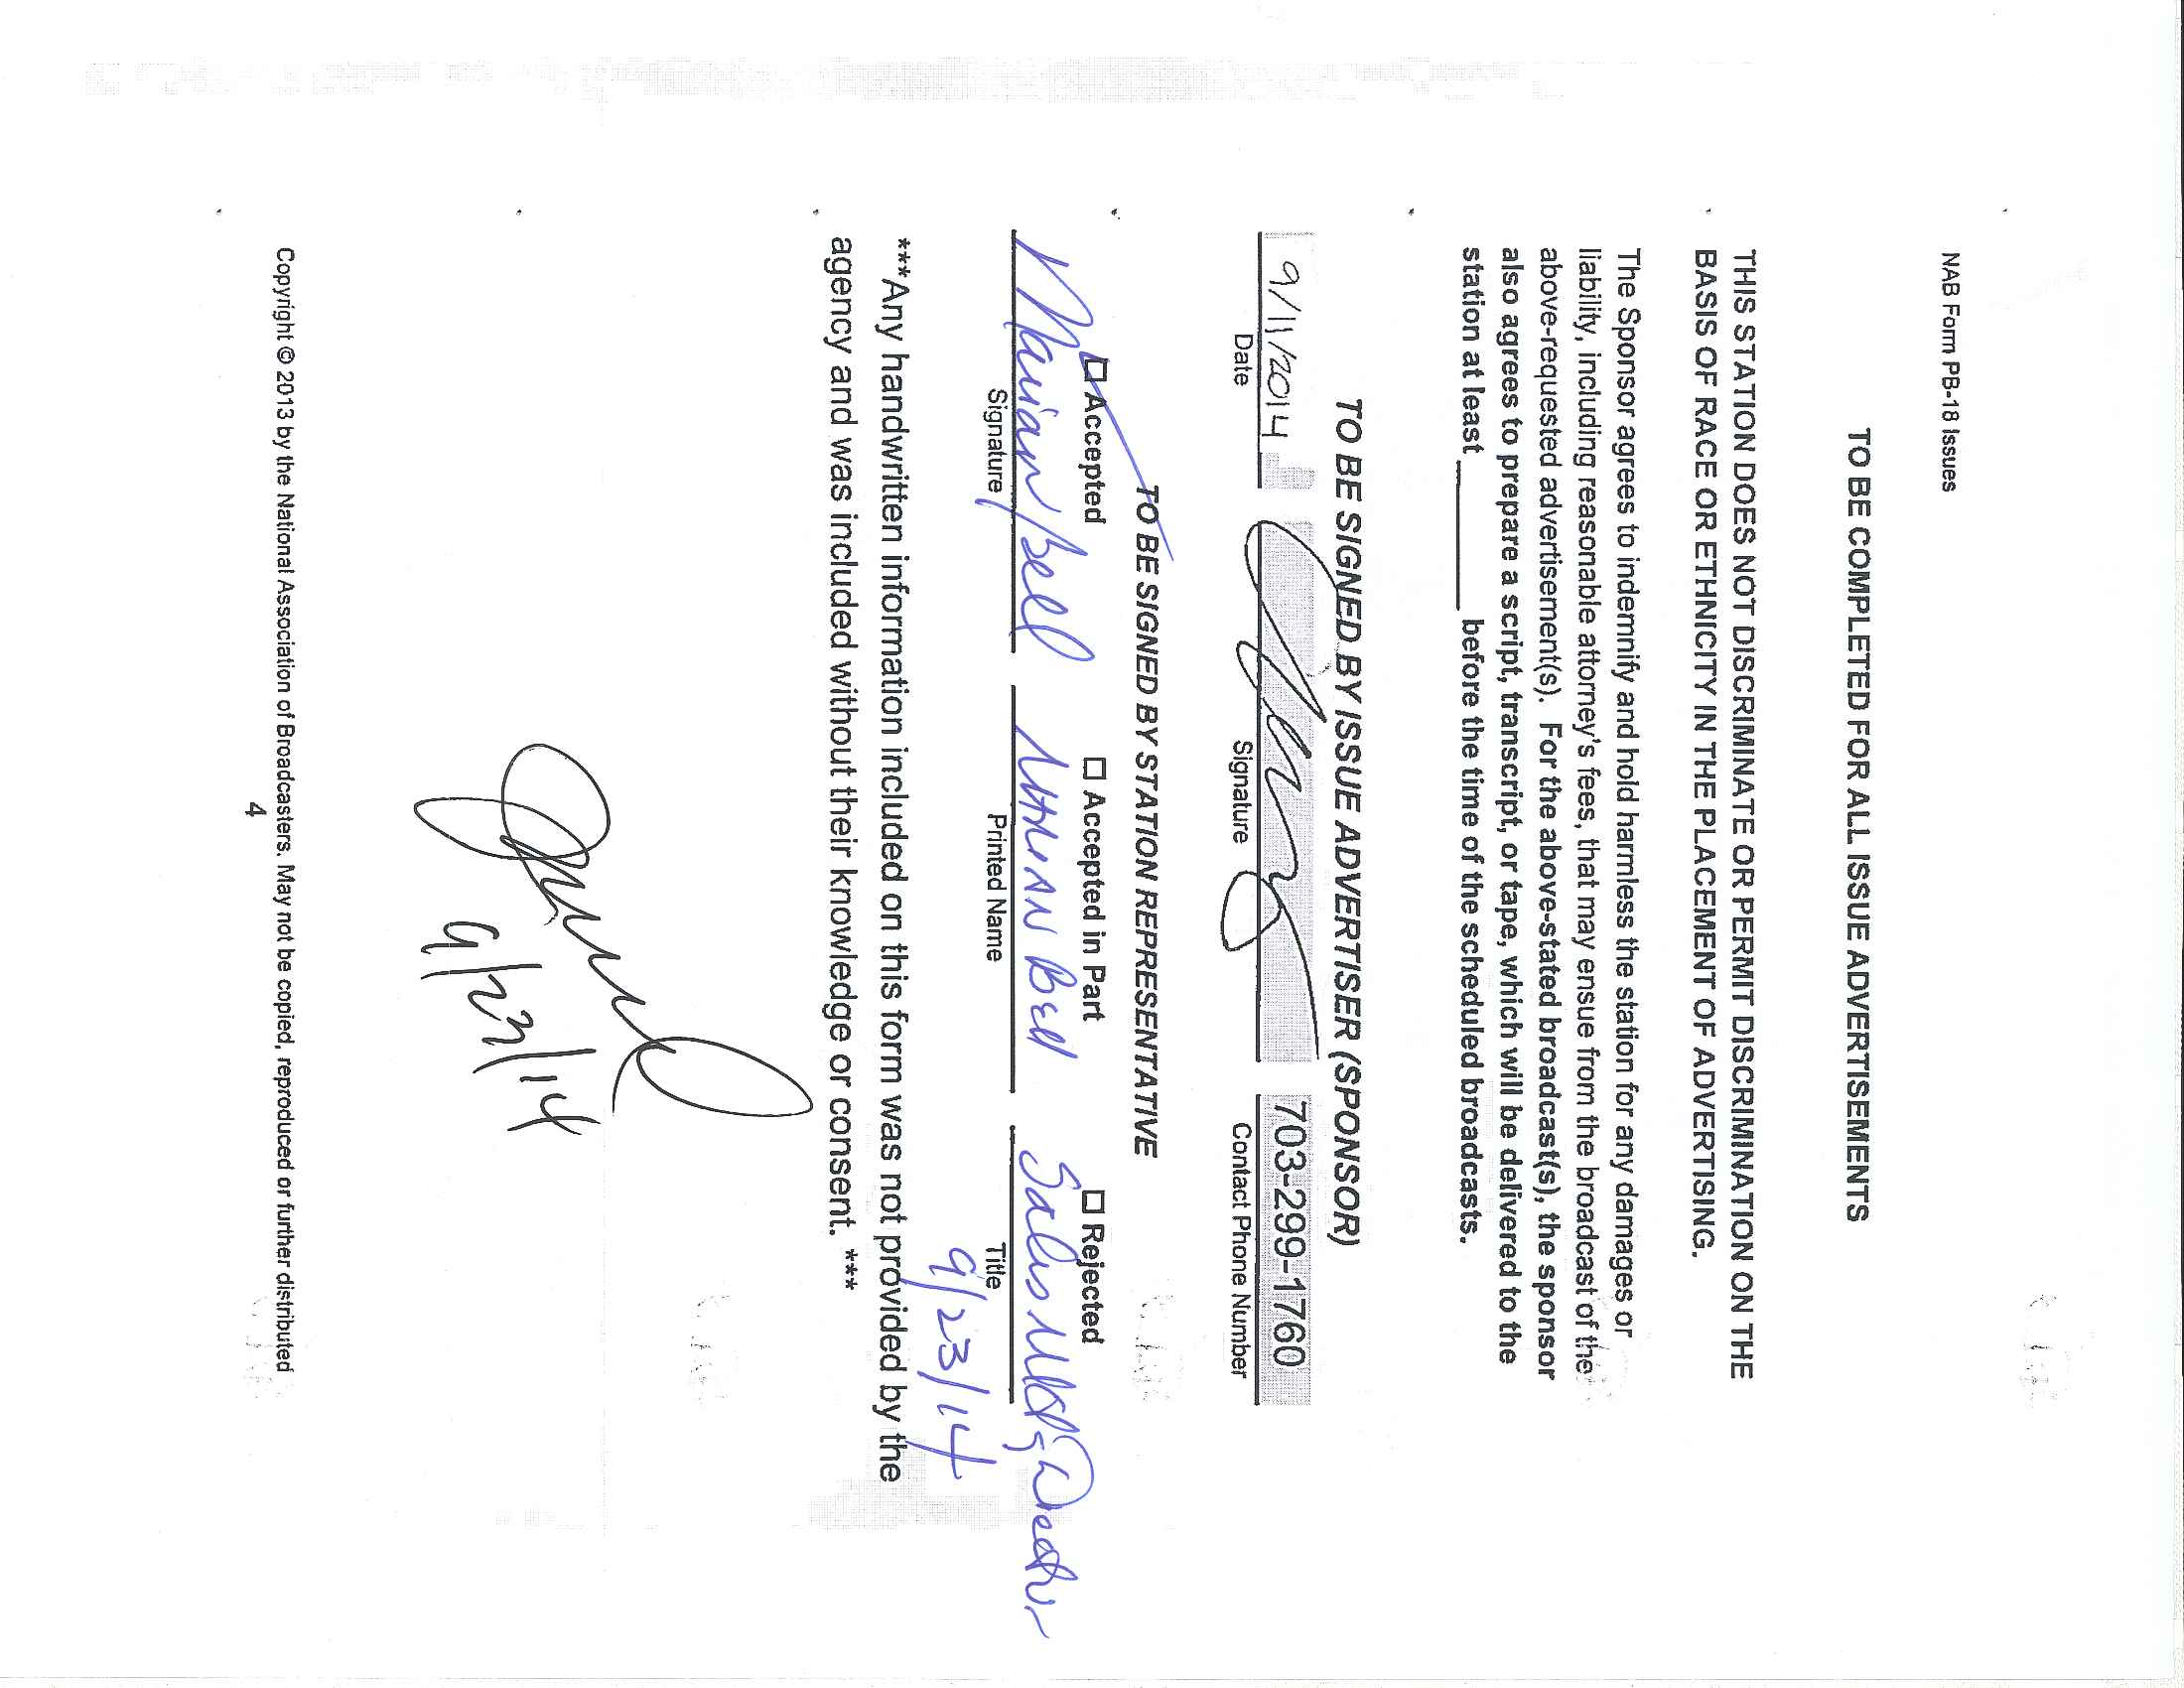 NAB Form PB-18 Issues
TO BE COMPLETED FOR ALL ISSUE ADVERTISEMENTS
THIS STATION DOES NOT DISCRIMINATE OR PERMIT DISCRIMINATION ON THE
BASIS OF RACE OR ETHNICITY IN THE PLACEMENT OF ADVERTISING.
The Sponsor agrees to indemnify and hold harmless the station for any damages or
liability, including reasonable attorney's fees, that may ensue from the broadcast of the
above-requested advertisement(s). For the above-stated broadcast(s), the sponsor
also agrees to prepare a script, transcript, or tape, which will be delivered to the
station at least ______ before the time of the scheduled broadcasts.
TO BE SIGNED BY ISSUE ADVERTISER (SPONSOR)
9/11/2014 703-299-1760
Date Signature Contact Phone Number
TO BE SIGNED BY STATION REPRESENTATIVE
☐ Accepted ☐ Accepted in Part ☐ Rejected
Marian Bell Marian Bell Sales
Signature Printed Name Title
9/23/14
***Any handwritten information included on this form was not provided by the
agency and was included without their knowledge or consent. ***
9/23/14
Copyright © 2013 by the National Association of Broadcasters. May not be copied, reproduced or further distributed
4